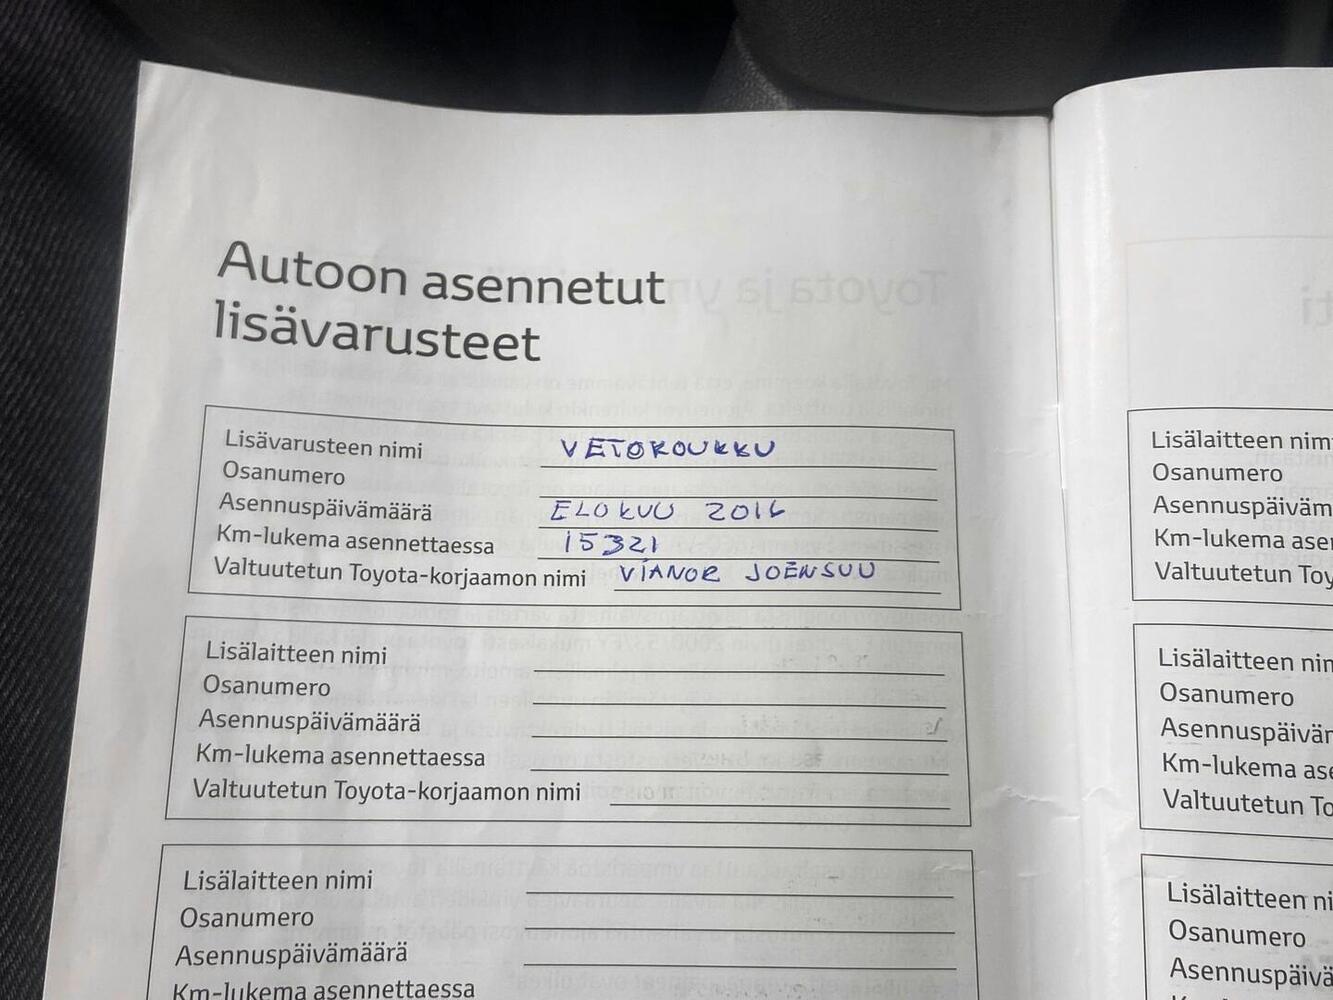 Autoon asennetut
lisävarusteet
Lisävarusteen nimi VETOKOUKKU
Osanumero
Asennuspäivämäärä ELOKUU 2016
Km-lukema asennettaessa 15321
Valtuutetun Toyota-korjaamon nimi VIANOR JOENSUU
Lisälaitteen nimi
Osanumero
Asennuspäivämäärä
Km-lukema asennettaessa
Valtuutetun Toyota-korjaamon nimi
Lisälaitteen nimi
Osanumero
Asennuspäivämäärä
Km-lukema asennettaessa
Lisälaitteen nim
Osanumero
Asennuspäiväm
Km-lukema aser
Valtuutetun Toy
Lisälaitteen nin
Osanumero
Asennuspäivär
Km-lukema ase
Valtuutetun To
Lisälaitteen ni
Osanumero
Asennuspäivä